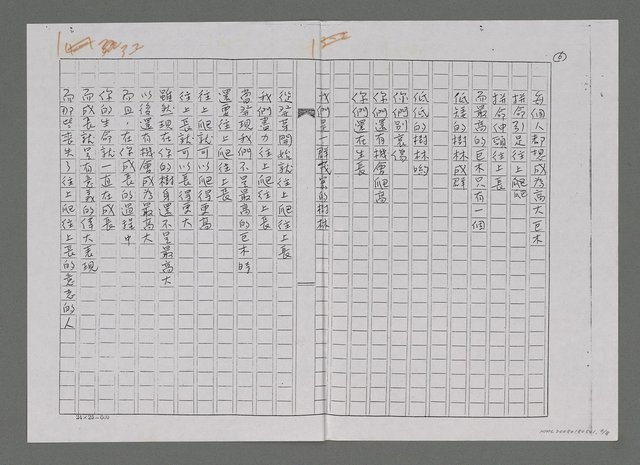 (6)
每個人都想成為高大巨木
拼命引足往上爬爬
拼命伸頭往上長
而最高的巨木只有一個
低矮的樹林成群
低低的樹林喲
你們別哀傷
你們還有機會爬高
你們還在生長
我們是一群哉的樹林
從發芽開始就往上長
我們盡力往上爬往上長
當發現我們不是最高的巨木時
還要往上爬往上長
往上爬就可以爬得更高
往上長就可以長得更大
雖然現在你的樹身還不是最高大
以後還有機會成為最高大
而且,在你成長的過程中
你的生命就一直在成長
而成長就是有意義的偉大表現
而那些喪失了往上爬往上長的意志的人
24×25=600